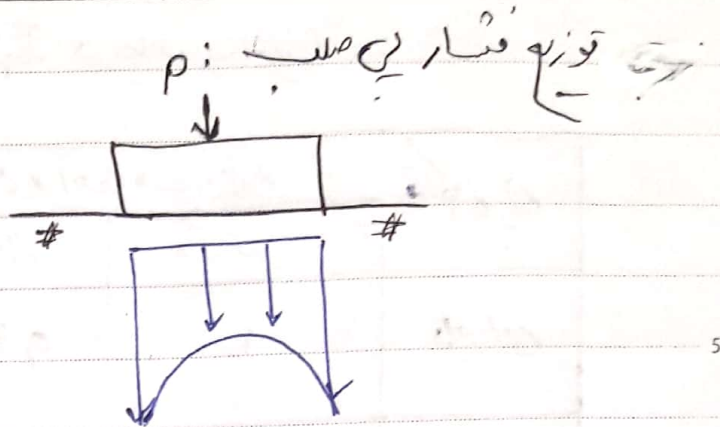 توزیع فشار پی صلب :
P
5